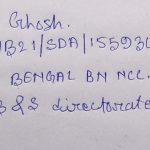 Ghosh.
WB21/SDA/155930
BENGAL BN NCC.
B & S directorate